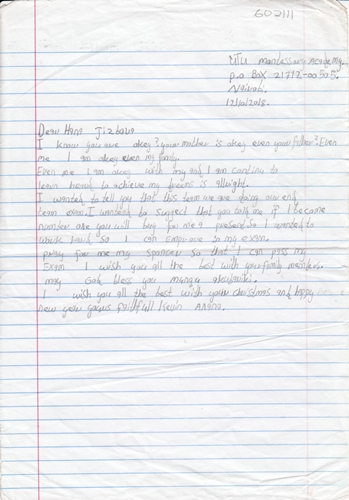 602111
UTU Montessori Academy
P.O BOX 21712-00505.
Nairobi.
12/10/2018.
Dear Hana Jizbova
I know you are okey? your mother is okey even your father? Even
me I am okey even my family.
Even me I am okey with my and I am
learn hard to achieve my is allright.
I wanted to tell you that this term we are doing our end
term exam. I wanted to suggest that you tell me if I became
number one you will buy for me a present so I wanted to
work hard so I can empruve so my exam.
pray for me my sponcer so that I can pass my
Exam I wish you all the best with your family members.
may God bless you mungu akubariki.
I wish you all the best wish your christmas and happy
new year yours faithfull Kevin